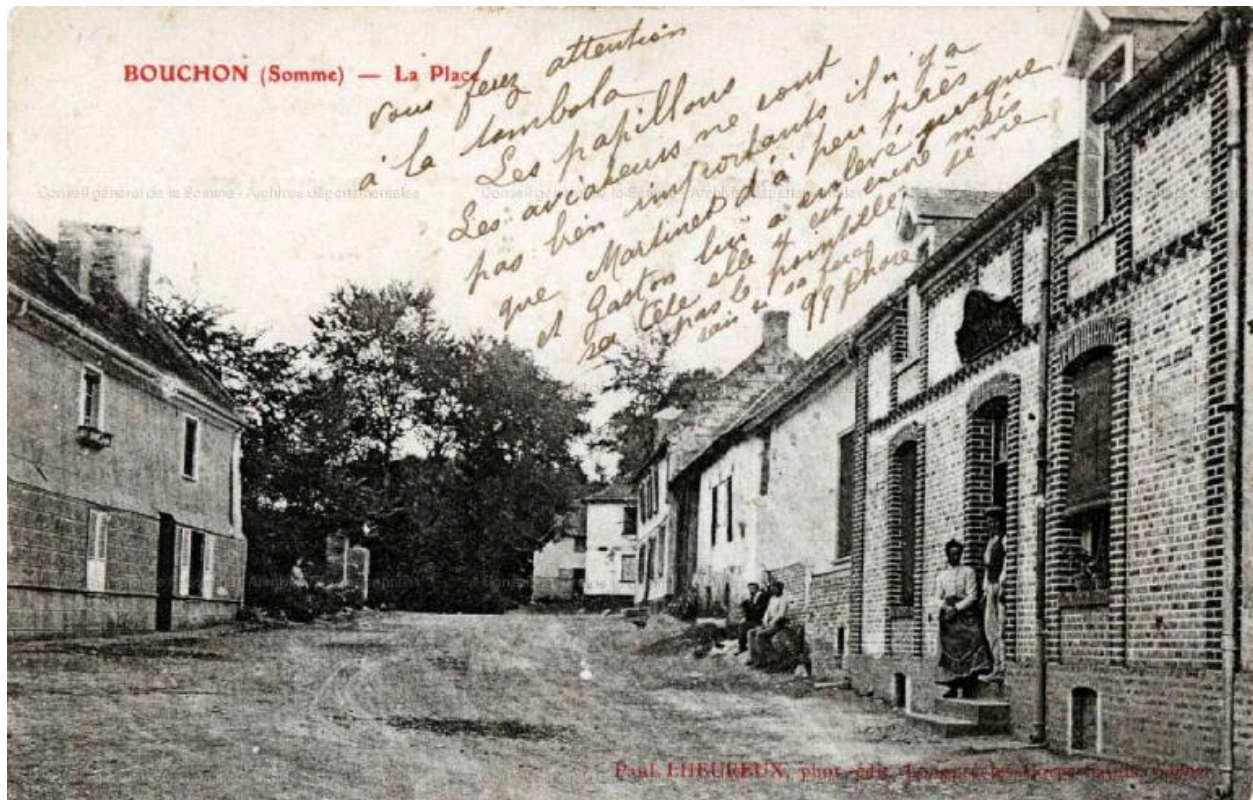 BOUCHON (Somme) — La Place
vous ferez attention
à la tombola
Les papillons
Les aviateurs ne sont
pas bien importants il n'y a
que Martinet d'à peu près
et Gaston lui a enlevé presque
sa tête elle y est encore mais
pas le
Conseil général de la Somme - Archives départementales
Conseil général de la Somme - Archives départementales
Paul LHEUREUX, phot.-édit., Longpré-les-Corps-Saints